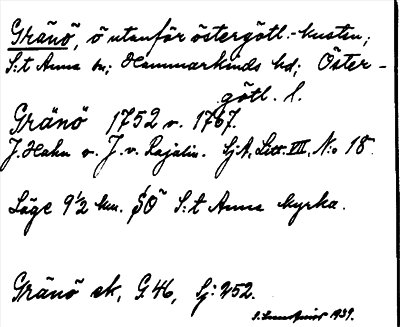 Gränö, ö utanför östergötl.-kusten;
S:t Anna sn; Hammarkinds hd; Öster-
götl. l.
Gränö 1752 o. 1767.
J. Hahn o. J. v. Rajalin. Sj.A, Litt. VII, No 18.
Läge 9½ km. SO S:t Anna kyrka.
Gränö ek, G. 46, Sj: 252.
1939.